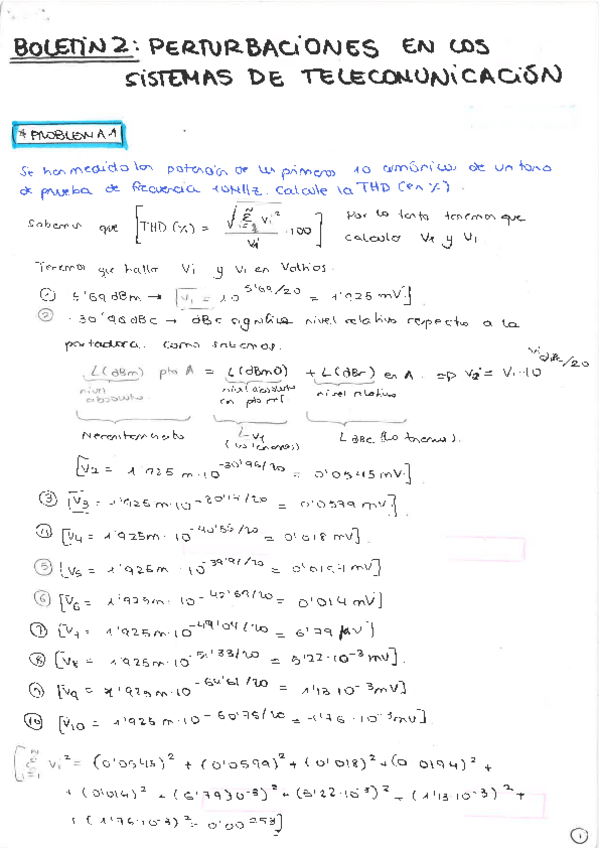 BOLETIN 2: PERTURBACIONES EN LOS
SISTEMAS DE TELECOMUNICACIÓN
* PROBLEMA 1
Se han medido las potencias de los primeros 10 armónicos de un tono
de prueba de frecuencia 10MHz. Calcule la THD (en %).
Sabemos que [THD (%) = √Σ Vi² / V1 · 100] Por lo tanto tenemos que
calcular Vi y V1
Tenemos que hallar Vi y V1 en Voltios.
① 5'69 dBm → [V1 = 10^5'69/20 = 1'925 mV]
② -30'96 dBc → dBc significa nivel relativo respecto a la
portadora. Como sabemos:
L(dBm) pto A = L(dBm0) + L(dBr) en A. ⇒ Vi = V1·10^/20
nivel absoluto
nivel absoluto en pto ref
nivel relativo
Necesitamos
L V1
L dBc (Lo tenemos).
[V2 = 1'925 m·10^-30'96/20 = 0'0545 mV]
③ [V3 = 1'925 m·10^-20'14/20 = 0'0599 mV]
④ [V4 = 1'925 m·10^-40'55/20 = 0'018 mV]
⑤ [V5 = 1'925 m·10^-39'91/20 = 0'0194 mV]
⑥ [V6 = 1'925 m·10^-42'69/20 = 0'014 mV]
⑦ [V7 = 1'925 m·10^-49'04/20 = 6'79 μV]
⑧ [V8 = 1'925 m·10^-51'33/20 = 5'22·10^-3 mV].
⑨ [V9 = 1'925 m·10^-64'61/20 = 1'13·10^-3 mV]
⑩ [V10 = 1'925 m·10^-60'75/20 = 1'76·10^-3 mV].
[Σ Vi² = (0'0545)² + (0'0599)² + (0'018)² + (0'0194)² +
+ (0'014)² + (6'79·10^-3)² + (5'22·10^-3)² + (1'13·10^-3)² +
+ (1'76·10^-3)² = 0'00]
①